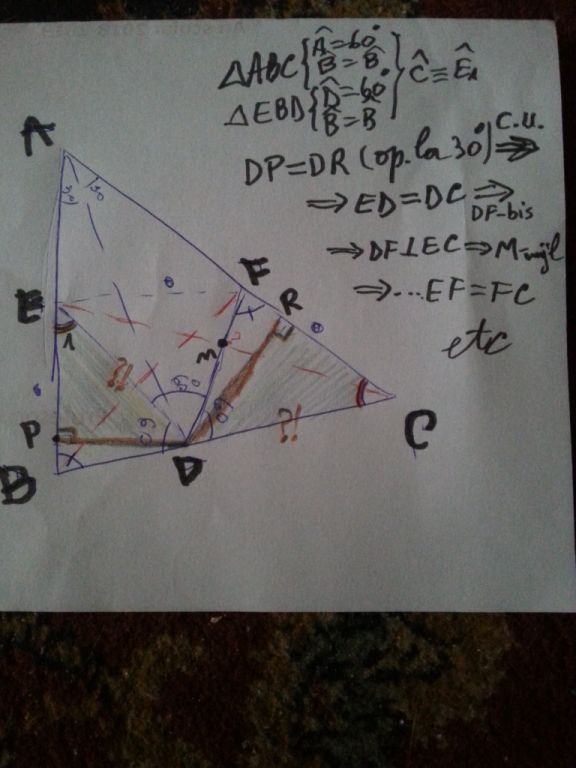 ΔABC { Â=60° B̂=B̂ } Ĉ≡Ê₁
ΔEBD { D̂=60° B̂=B̂
DP=DR (op. la 30°) C.U. ⇒
⇒ ED=DC ⇒ DF-bis
⇒ DF⊥EC ⇒ M-mijl
⇒ ... EF=FC
etc
A
30
30
E
1
F
R
?!
M
60
60
60
?!
P
B
D
C